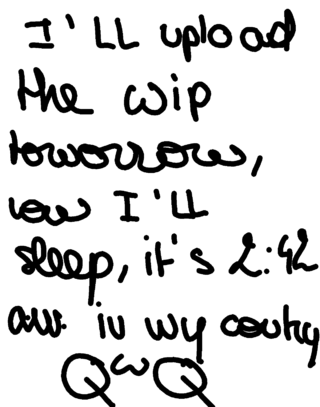 I'LL upload
the wip
tomorrow,
now I'll
sleep, it's 2:42
a.m. in my coutry
QwQ